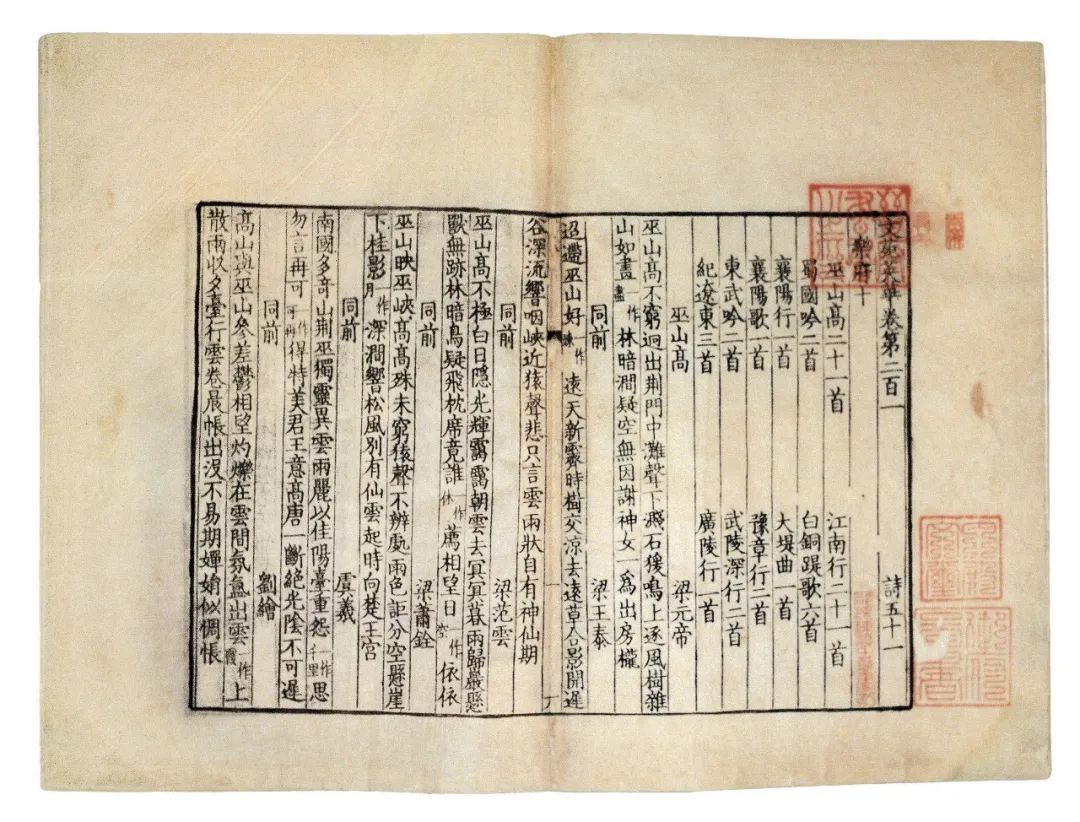 文苑英華卷第二百一 詩五十一
樂府十
巫山髙二十一首 江南行二十一首
蜀國吟二首 白銅踶歌六首
襄陽行一首 大堤曲一首
襄陽歌一首 豫章行二首
東武吟二首 武陵深行二首
紀遼東三首 廣陵行一首
巫山髙 梁元帝
巫山髙不窮迥出荆門中灘聲下濺石猨鳴上逐風樹雜
山如畫一作盡林暗澗疑空無因謝神女一爲出房櫳
同前 梁王泰
迢遰巫山好一作竦遠天新霽時樹交凉去遠草合影開遲
谷深流響咽峽近猿聲悲只言雲雨狀自有神仙期
同前 梁范雲
巫山髙不極白日隱光輝靄靄朝雲去冥冥暮雨歸巖懸
獸無跡林暗鳥疑飛枕席竟誰一作休薦相望日一作空依依
同前 梁蕭銓
巫山映巫峽髙髙殊未窮猿聲不辨處雨色詎分空懸崖
下桂影一作月深澗響松風別有仙雲起時向楚王宮
同前 虞羲
南國多奇山荆巫獨靈異雲雨麗以佳陽臺重怨一作千里思
勿言再可一作可再得特美君王意髙唐一斷絶光陰不可遲
同前 劉繪
髙山與巫山參差鬱相望灼爍在雲間氛氲出雲一作霞上
散雨收夕臺行雲卷晨帳出沒不易期嬋娟似惆悵